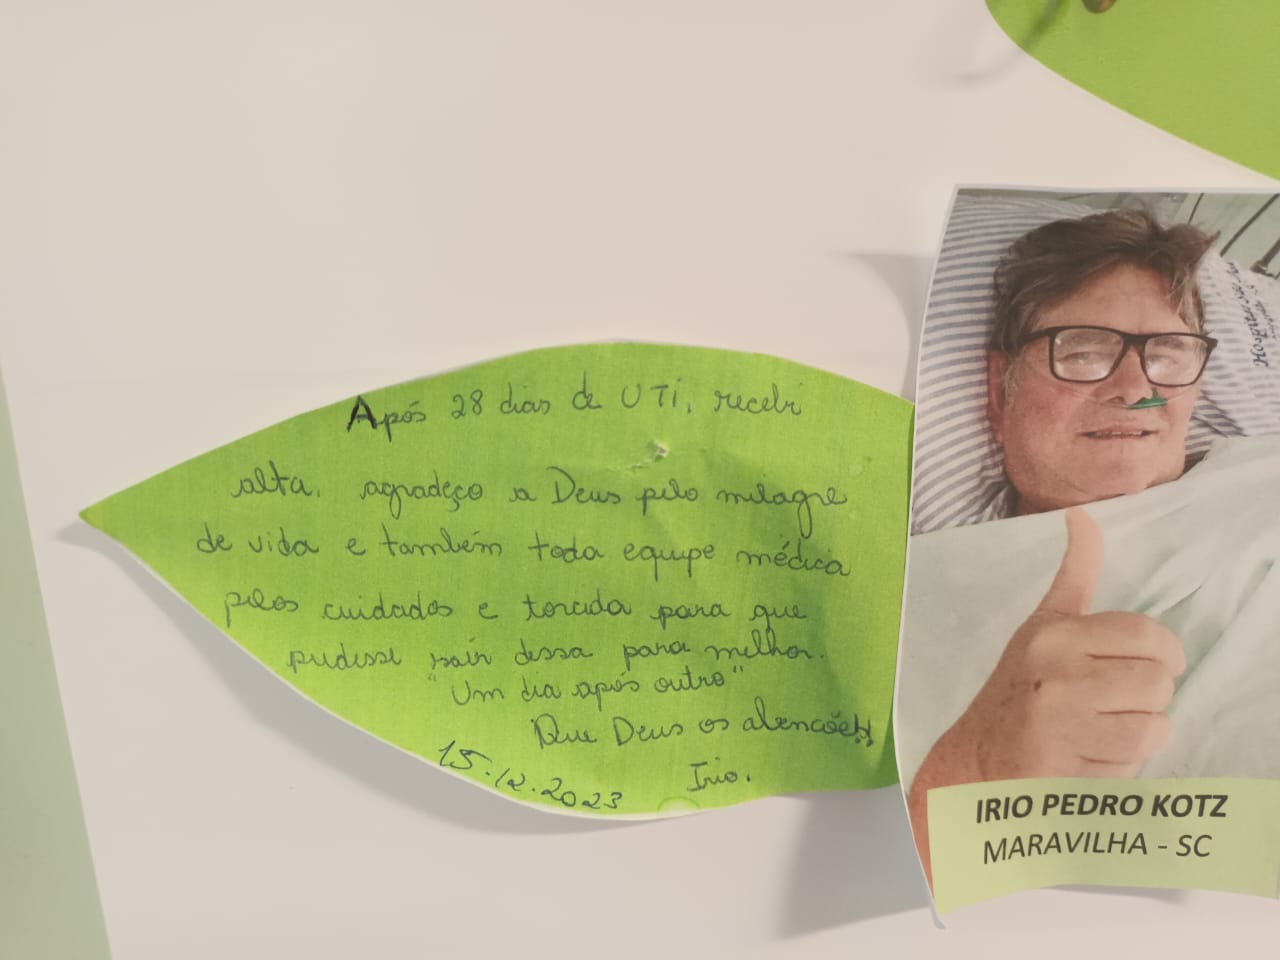 Após 28 dias de UTi, recebi
alta, agradeço a Deus pelo milagre
de vida e também toda equipe médica
pelos cuidados e torcida para que
pudesse sair dessa para melhor.
"Um dia após outro"
Que Deus os abençõe!!
Irio.
15.12.2023
IRIO PEDRO KOTZ
MARAVILHA - SC